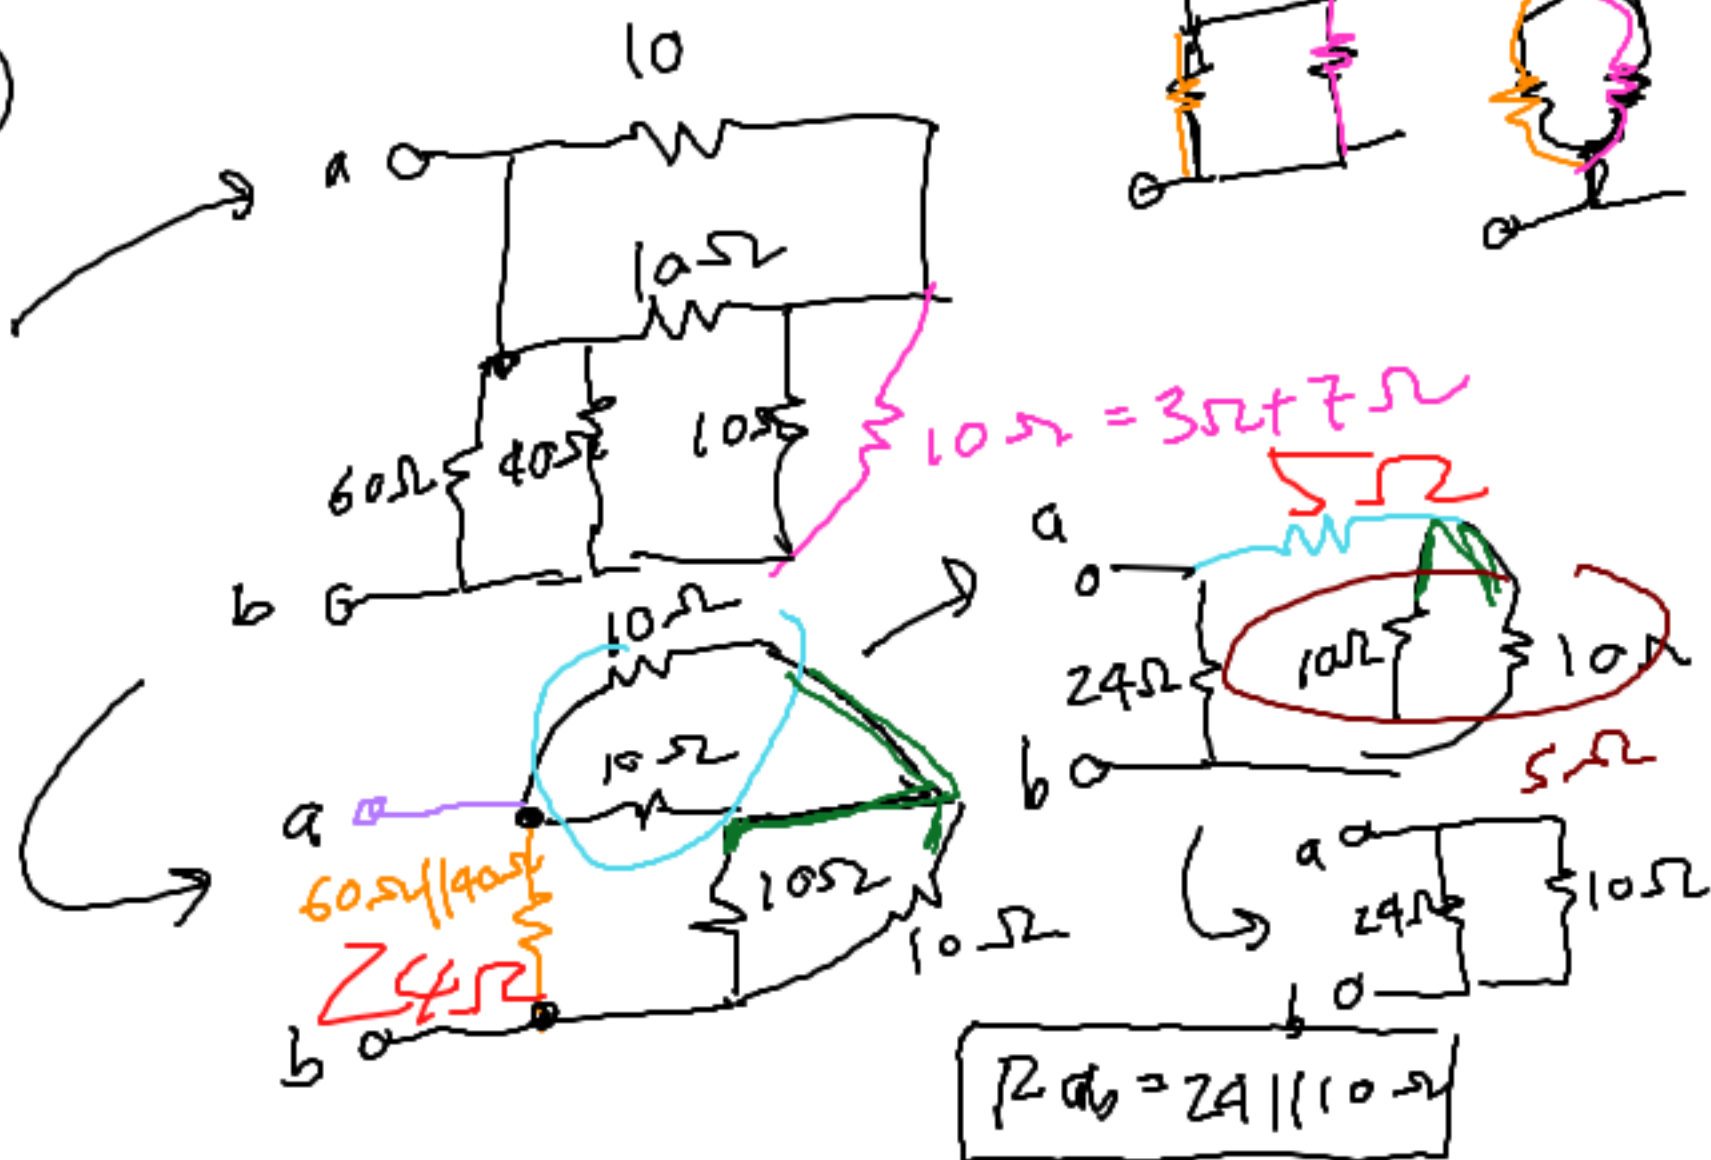 10
a
10Ω
60Ω
40Ω
10Ω
10Ω = 3Ω+7Ω
b
10Ω
10Ω
a
60Ω||40Ω
24Ω
10Ω
10Ω
b
a
5Ω
24Ω
10Ω
10Ω
b
5Ω
a
24Ω
10Ω
b
Rab = 24||10Ω